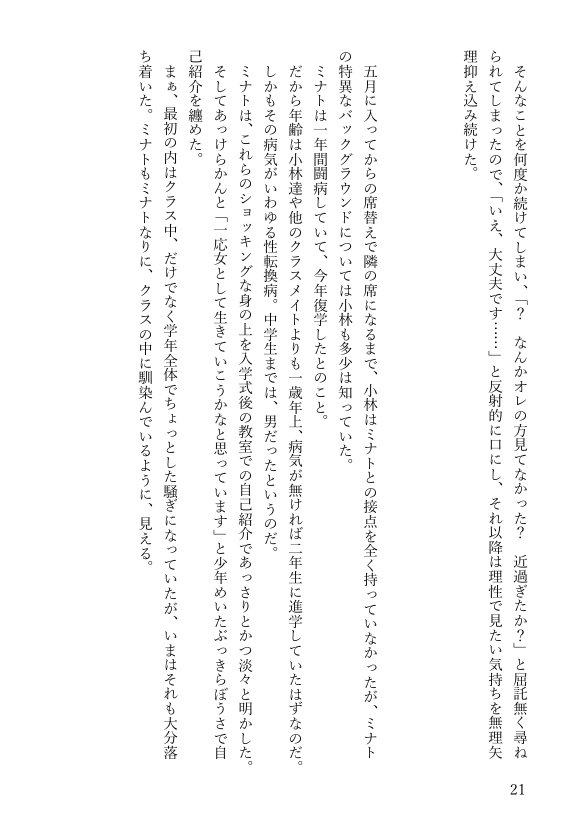 そんなことを何度か続けてしまい、「？　なんかオレの方見てなかった？　近過ぎたか？」と屈託無く尋ね
られてしまったので、「いえ、大丈夫です……」と反射的に口にし、それ以降は理性で見たい気持ちを無理矢
理抑え込み続けた。
五月に入ってからの席替えで隣の席になるまで、小林はミナトとの接点を全く持っていなかったが、ミナト
の特異なバックグラウンドについては小林も多少は知っていた。
ミナトは一年間闘病していて、今年復学したとのこと。
だから年齢は小林達や他のクラスメイトよりも一歳年上、病気が無ければ二年生に進学していたはずなのだ。
しかもその病気がいわゆる性転換病。中学生までは、男だったというのだ。
ミナトは、これらのショッキングな身の上を入学式後の教室での自己紹介であっさりとかつ淡々と明かした。
そしてあっけらかんと「一応女として生きていこうかなと思っています」と少年めいたぶっきらぼうさで自
己紹介を纏めた。
まぁ、最初の内はクラス中、だけでなく学年全体でちょっとした騒ぎになっていたが、いまはそれも大分落
ち着いた。ミナトもミナトなりに、クラスの中に馴染んでいるように、見える。
21